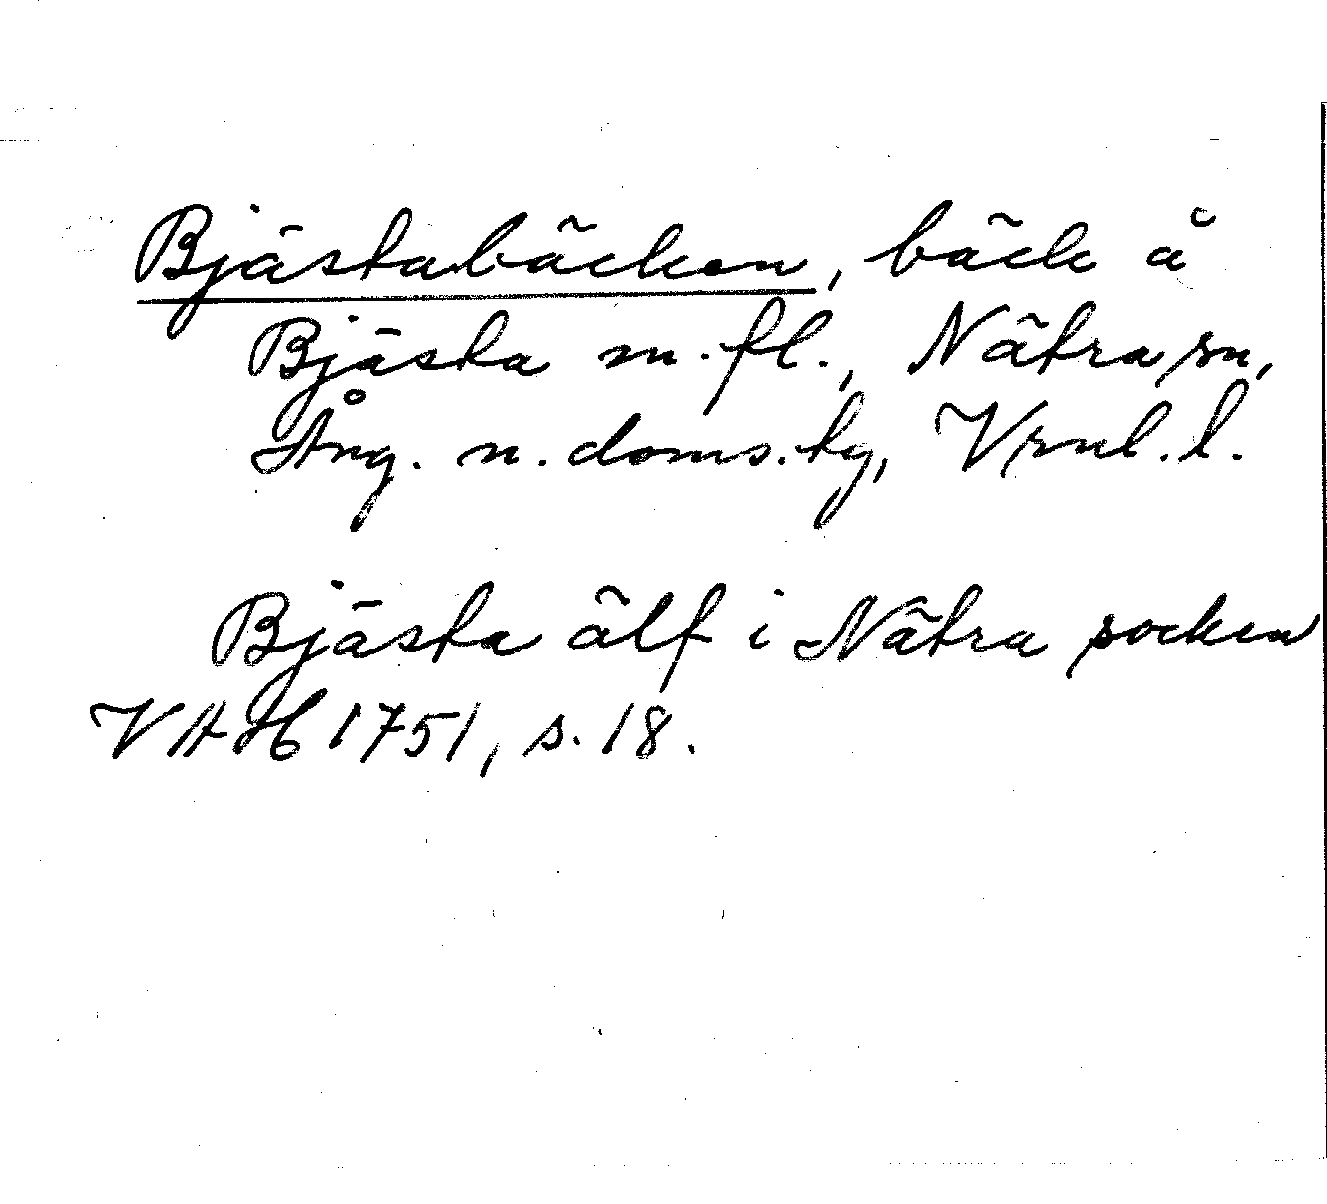 Bjästabäcken, bäck å
Bjästa m. fl., Nätra sn,
Ång. n. doms. tg, Vrnl. l.
Bjästa älf i Nätra socken
VAH 1751, s. 18.